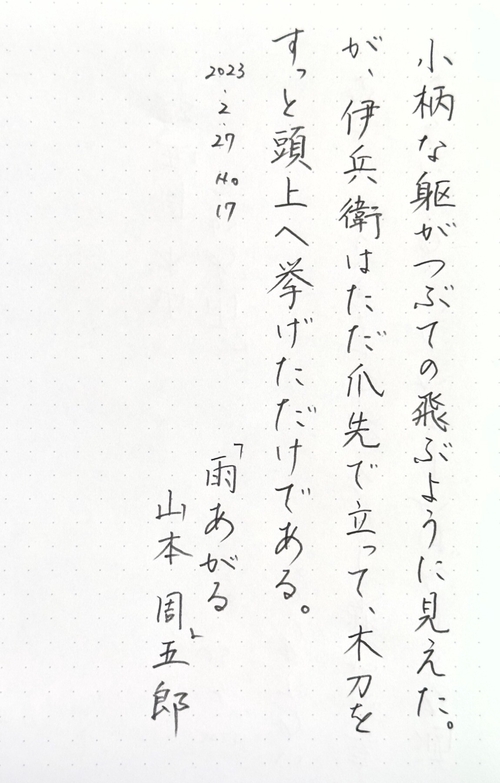 小柄な躯がつぶての飛ぶように見えた。
が、伊兵衛はただ爪先で立って、木刀を
すっと頭上へ挙げただけである。
2023.2.27 No 17
「雨あがる」
山本周五郎